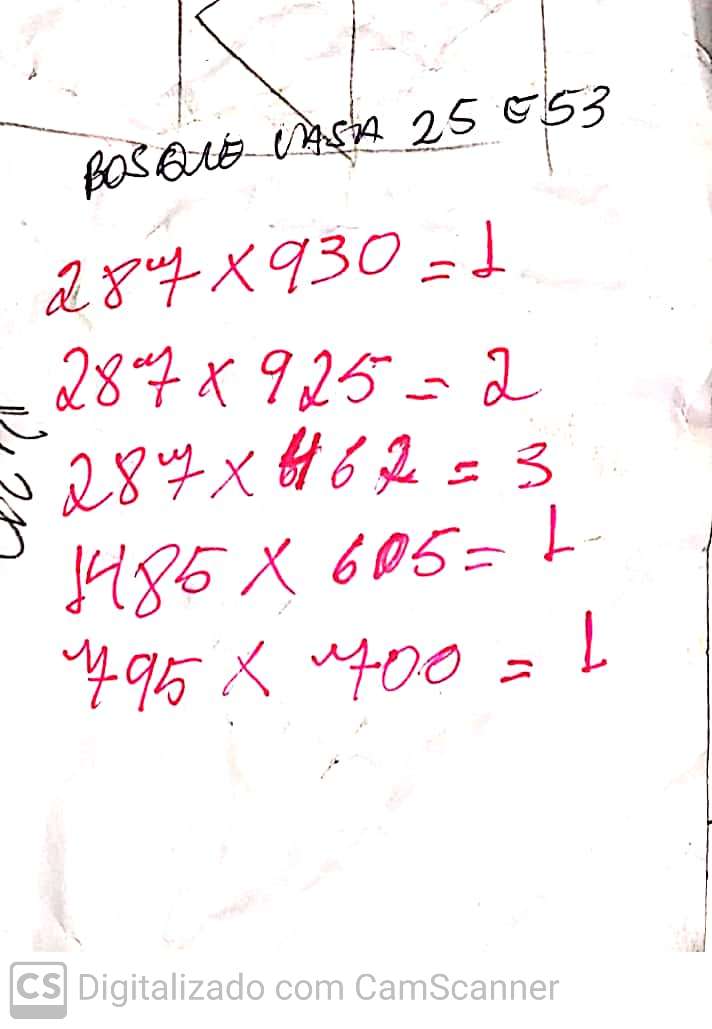 BOSQUE CASA 25 E 53
287 X 930 = 1
287 X 925 = 2
287 X 462 = 3
1485 X 605 = 1
795 X 700 = 1
CS Digitalizado com CamScanner